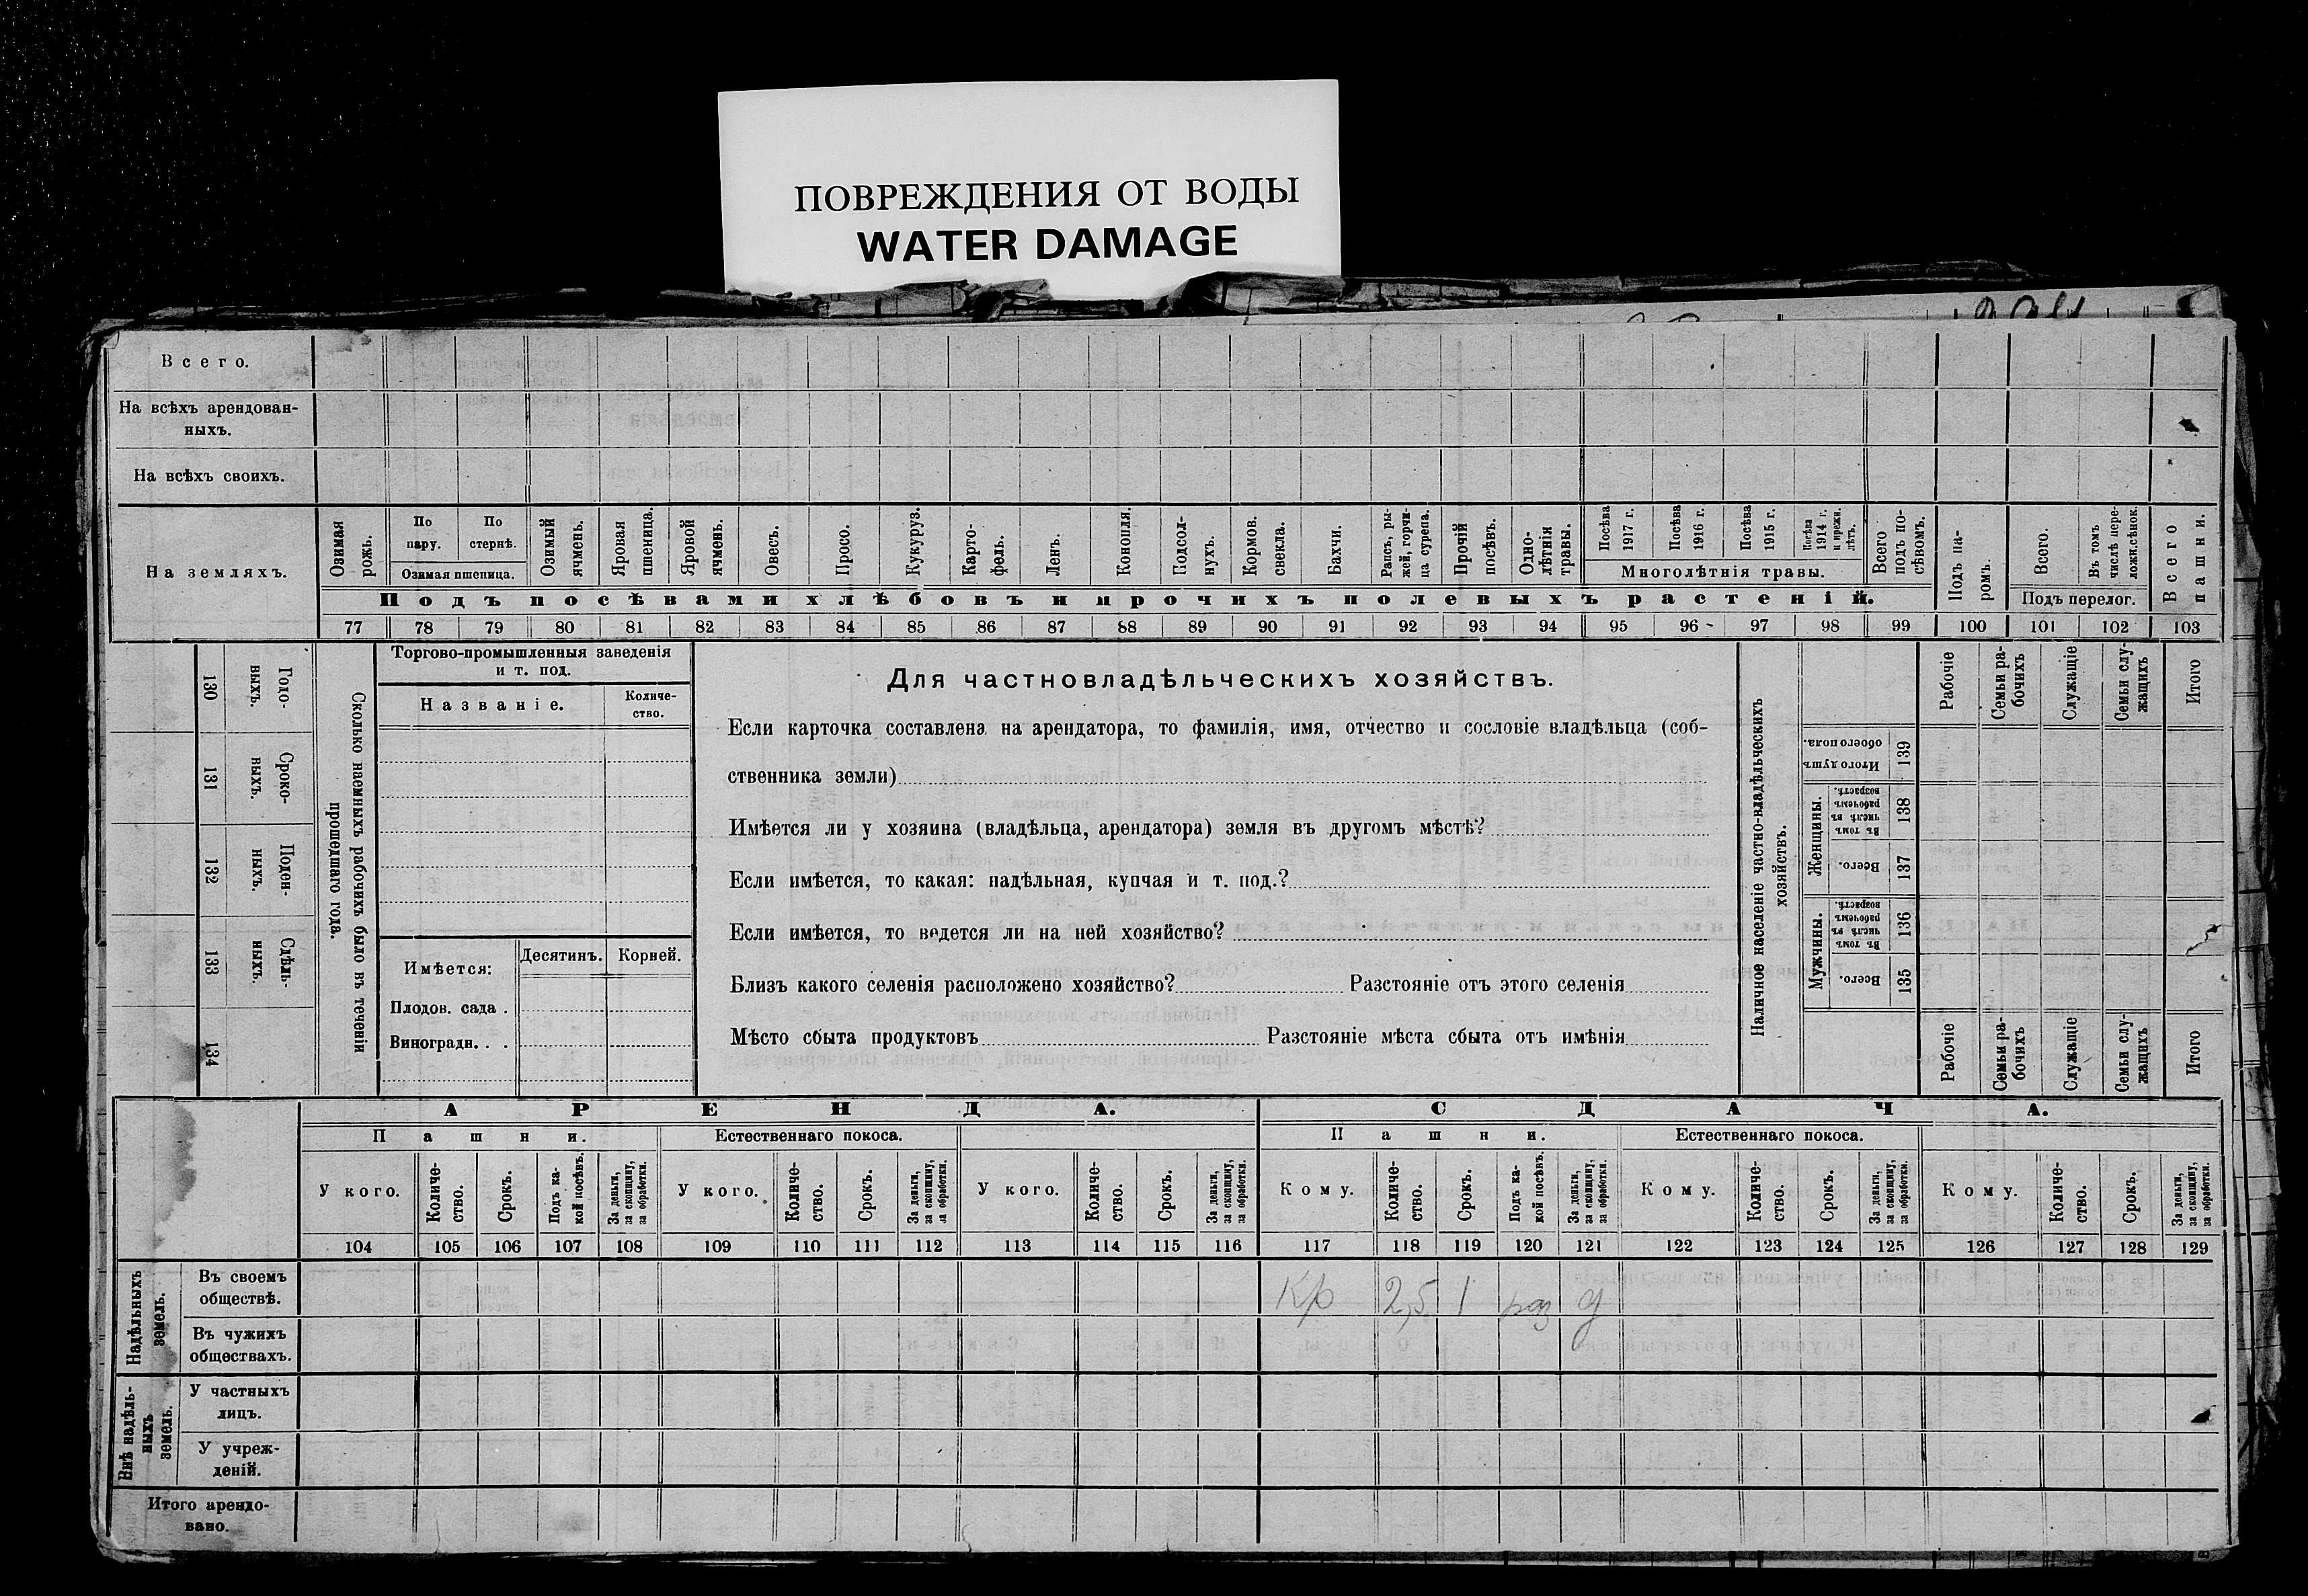 ПОВРЕЖДЕНИЯ ОТ ВОДЫ
WATER DAMAGE
Всего.
На всѣхъ арендован-
ныхъ.
На всѣхъ своихъ.
На земляхъ.
Озимая рожь.
По пару.
По стернѣ.
Озимая пшеница.
Озимый ячмень.
Яровая пшеница.
Яровой ячмень.
Овесъ.
Просо.
Кукуруз.
Карто-
фель.
Ленъ.
Конопля.
Подсол-
нухъ.
Кормов. свекла.
Бахчи.
Рапсъ, ры-
жей, горчи-
ца сурепа.
Прочій посѣвъ.
Одно-
лѣтнія травы.
Посѣва 1917 г.
Посѣва 1916 г.
Посѣва 1915 г.
Посѣва 1914 г. и прежн. лѣтъ.
Многолѣтнія травы.
Всего подъ по-
сѣвомъ.
Подъ па-
ромъ.
Всего.
Въ томъ числѣ пере-
ложн.сѣнок.
Подъ перелог.
Всего пашни.
Подъ посѣвами хлѣбовъ и прочихъ полевыхъ растеній.
77 78 79 80 81 82 83 84 85 86 87 88 89 90 91 92 93 94 95 96 97 98 99 100 101 102 103
130 Годо-
выхъ.
131 Сроко-
выхъ.
132 Поден-
ныхъ.
133 Сдѣль-
ныхъ.
134
Сколько наемныхъ рабочихъ было въ теченіи
прошедшаго года.
Торгово-промышленныя заведенія
и т. под.
Названіе.
Количе-
ство.
Имѣется:
Десятинъ.
Корней.
Плодов. сада .
Виноградн. . .
Для частновладѣльческихъ хозяйствъ.
Если карточка составлена на арендатора, то фамилія, имя, отчество и сословіе владѣльца (соб-
ственника земли)
Имѣется ли у хозяина (владѣльца, арендатора) земля въ другомъ мѣстѣ?
Если имѣется, то какая: надѣльная, купчая и т. под.?
Если имѣется, то ведется ли на ней хозяйство?
Близъ какого селенія расположено хозяйство? Разстояніе отъ этого селенія
Мѣсто сбыта продуктовъ Разстояніе мѣста сбыта отъ имѣнія
Наличное населеніе частно-владѣльческихъ
хозяйствъ.
Рабочіе
Семьи ра-
бочихъ
Служащіе
Семьи слу-
жащихъ
Итого
Итого душъ обоего пола. 139
Женщины.
Въ томъ числѣ въ рабочемъ возрастѣ. 138
Всего. 137
Мужчины.
Въ томъ числѣ въ рабочемъ возрастѣ. 136
Всего. 135
Рабочіе
Семьи ра-
бочихъ
Служащіе
Семьи слу-
жащихъ
Итого
АРЕНДА.
СДАЧА.
Пашни.
Естественнаго покоса.
Пашни.
Естественнаго покоса.
У кого.
Количе-
ство.
Срокъ.
Подъ ка-
кой посѣвъ.
За деньги, за скопщину, за обработки.
У кого.
Количе-
ство.
Срокъ.
За деньги, за скопщину, за обработки.
У кого.
Количе-
ство.
Срокъ.
За деньги, за скопщину, за обработки.
Кому.
Количе-
ство.
Срокъ.
Подъ ка-
кой посѣвъ.
За деньги, за скопщину, за обработки.
Кому.
Количе-
ство.
Срокъ.
За деньги, за скопщину, за обработки.
Кому.
Количе-
ство.
Срокъ.
За деньги, за скопщину, за обработки.
104 105 106 107 108 109 110 111 112 113 114 115 116 117 118 119 120 121 122 123 124 125 126 127 128 129
Надѣльныхъ
земель.
Въ своемъ
обществѣ.
Кр 2,5 1 раз д
Въ чужихъ
обществахъ.
Внѣ надѣль-
ныхъ
земель.
У частныхъ
лицъ.
У учреж-
деній.
Итого арендо-
вано.